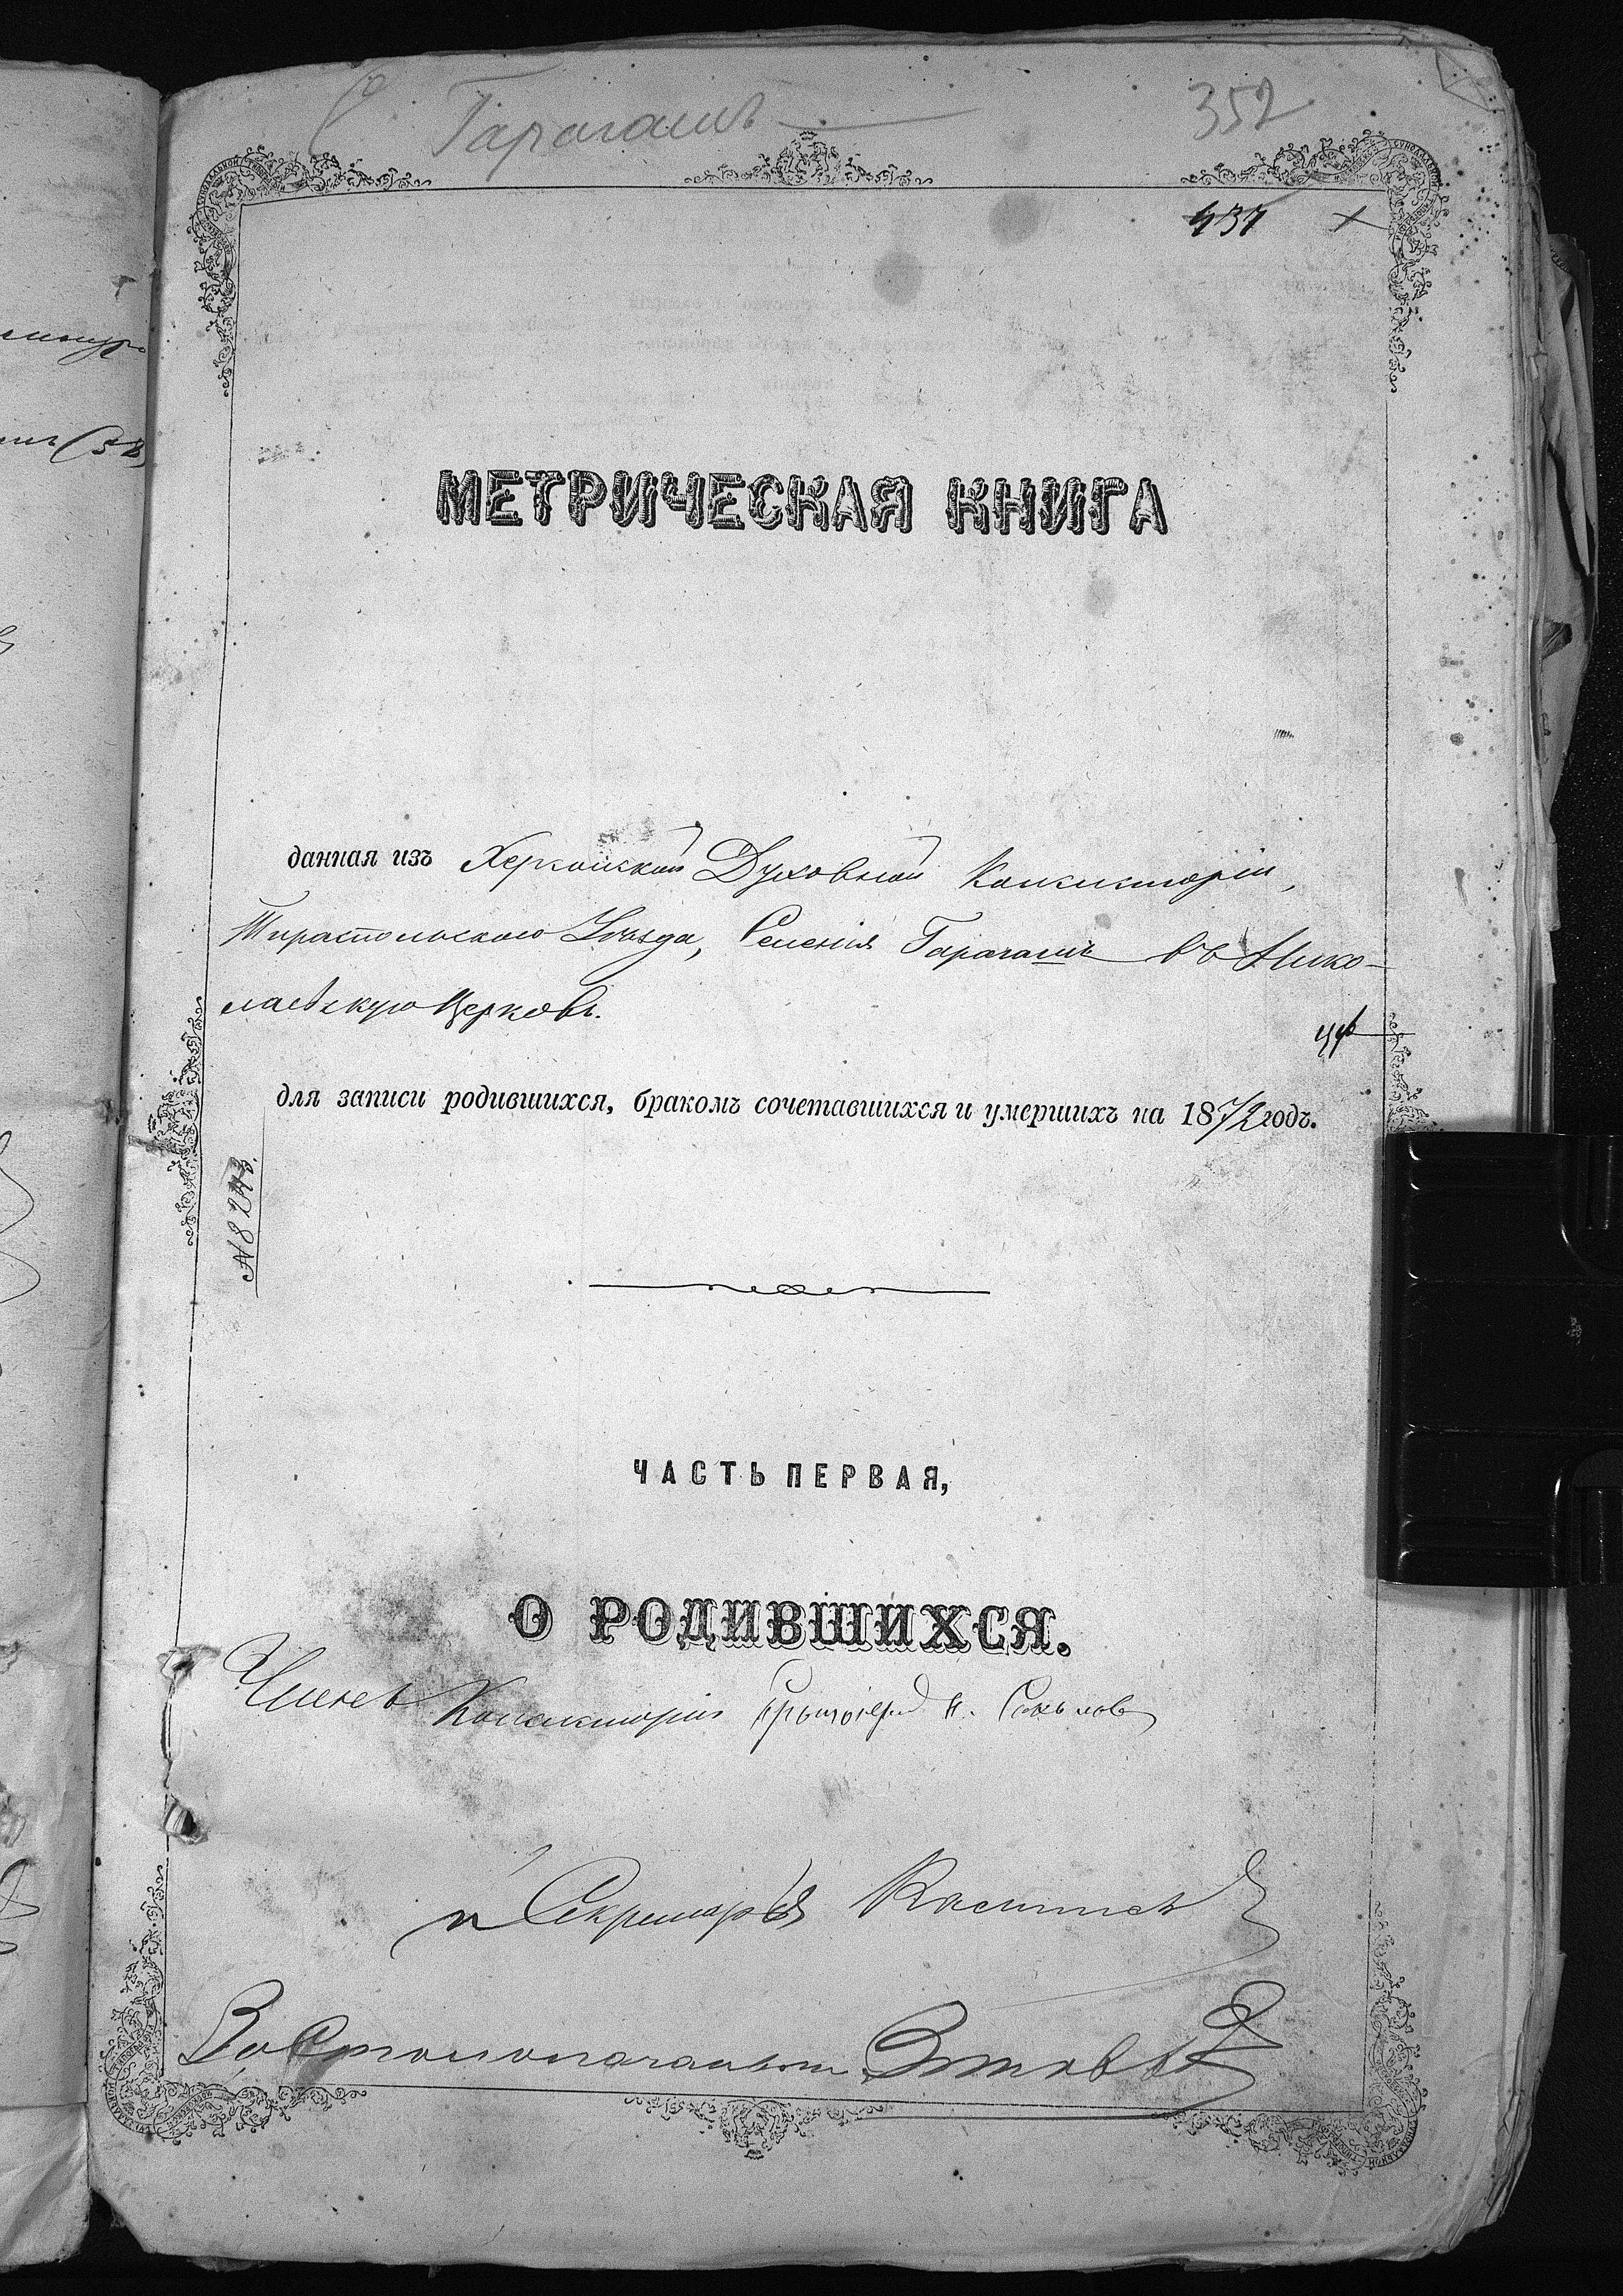 С. Гарагашъ
352
437
МЕТРИЧЕСКАЯ КНИГА
данная изъ Херсонской Духовной Консисторіи,
Тираспольскаго Уѣзда, Селенія Гарагашъ въ Нико-
лаевскую Церковь.
для записи родившихся, бракомъ сочетавшихся и умершихъ на 1872 годъ.
ЧАСТЬ ПЕРВАЯ,
О РОДИВШИХСЯ.
Членъ Консисторіи Протоіерей Соколовъ
и Секретарь
За Столоначальника Зотовъ